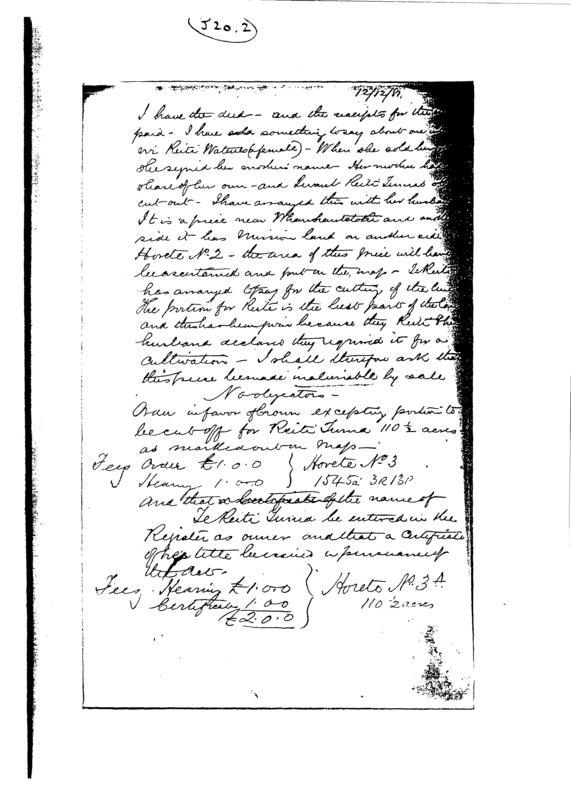 J20.2
12/12/81.
I have the deed – and the receipts for the
paid – I have also something to say about one
Reiti (female) – When she sold her
she signed her mother's name – Her mother
share of her own – and Reiti
cut out – I have arranged this with her husband
It is a piece near and
side it has Mission land on another side
Horete No 2 – the area of this piece will have
be ascertained and put on the map – Te Reiti
has arranged to pay for the cutting of the line
The portion for Reiti is the best part of the
and this has been given because they Reiti & her
husband declare they required it for a
Cultivation – I shall therefore ask that
this piece be made inalienable by sale
No objectors –
Order in favor of Crown excepting portion to
be cut off for Reiti 110 ½ acres
as marked out on map –
Fees Order £1.0.0 } Horete No 3
Hearing 1.0.0 } 1545a 3R 13P
And that the name of
Te Reiti be entered in the
Register as owner and that a Certificate
of her title be issued in pursuance of
the Act –
Fees Hearing £1.0.0 } Horete No. 3A
Certificate 1.0.0 } 110 ½ acres
£2.0.0